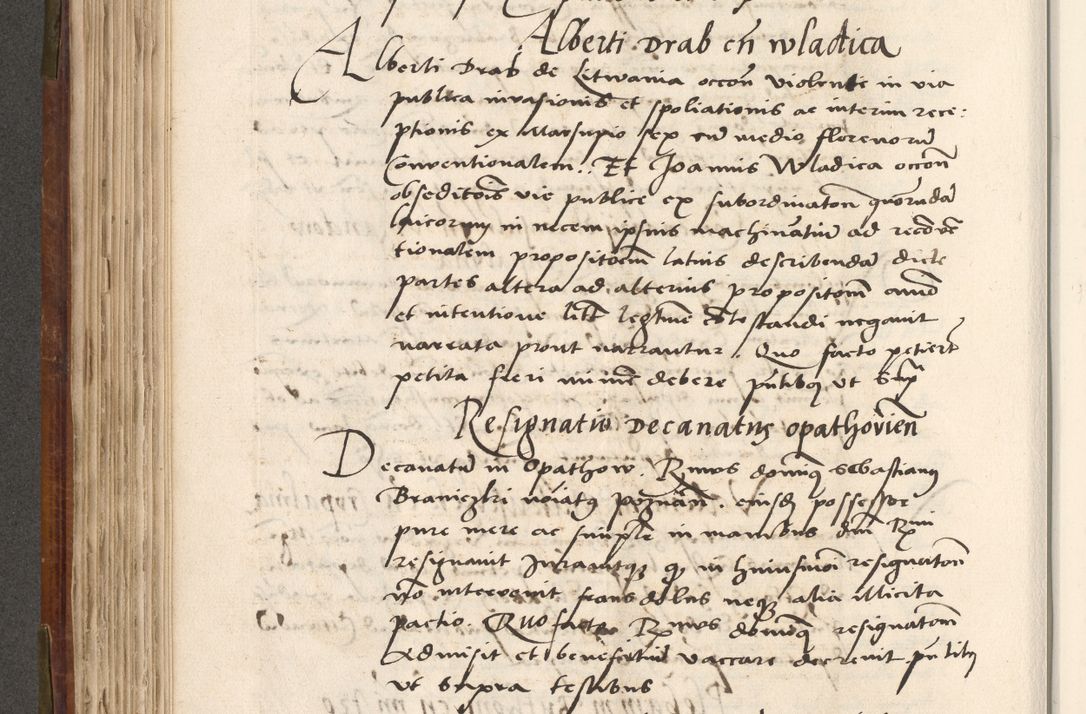 Alberti Drab cũ Wladica
Alberti Drab de Litwania occoñ violente in via
publica invasionis et spoliationis ac interim rece:
ptionis ex Marsupio sex cũ medio florenorũ
Conventionalem. Et Joannis Wladica occoñ
obseditois vie publice ex subordinatoñ quorundã
laicorum in necem ipsius machinãtiũ ad recõvẽ
tionalem propositoem latius describendã dicte
partes altera ad alterius propositom
et intentione litẽ legitime cõtestandi negavit
narrata prout narrantur. Quo facto petierũt
petita fieri minime debere pñtibus ut supͣ
Resignatio Decanatus opathovieñ
Decanatũ in Opathow. Rmus dominus Sebastianus
Braniczki noiatus poznañ. eiusdẽ possessor
pure mere ac simplr in manibus dñi Rmi
resignavit Juravitque qͥ in huiusmoi resignatoñ
nõ intervenit fraus dolus neque alia illicita
pactio. Quo facto Rmus dominus resignatom
admisit et beneficiũ vaccare decrevit pñtibus
ut supra testibus